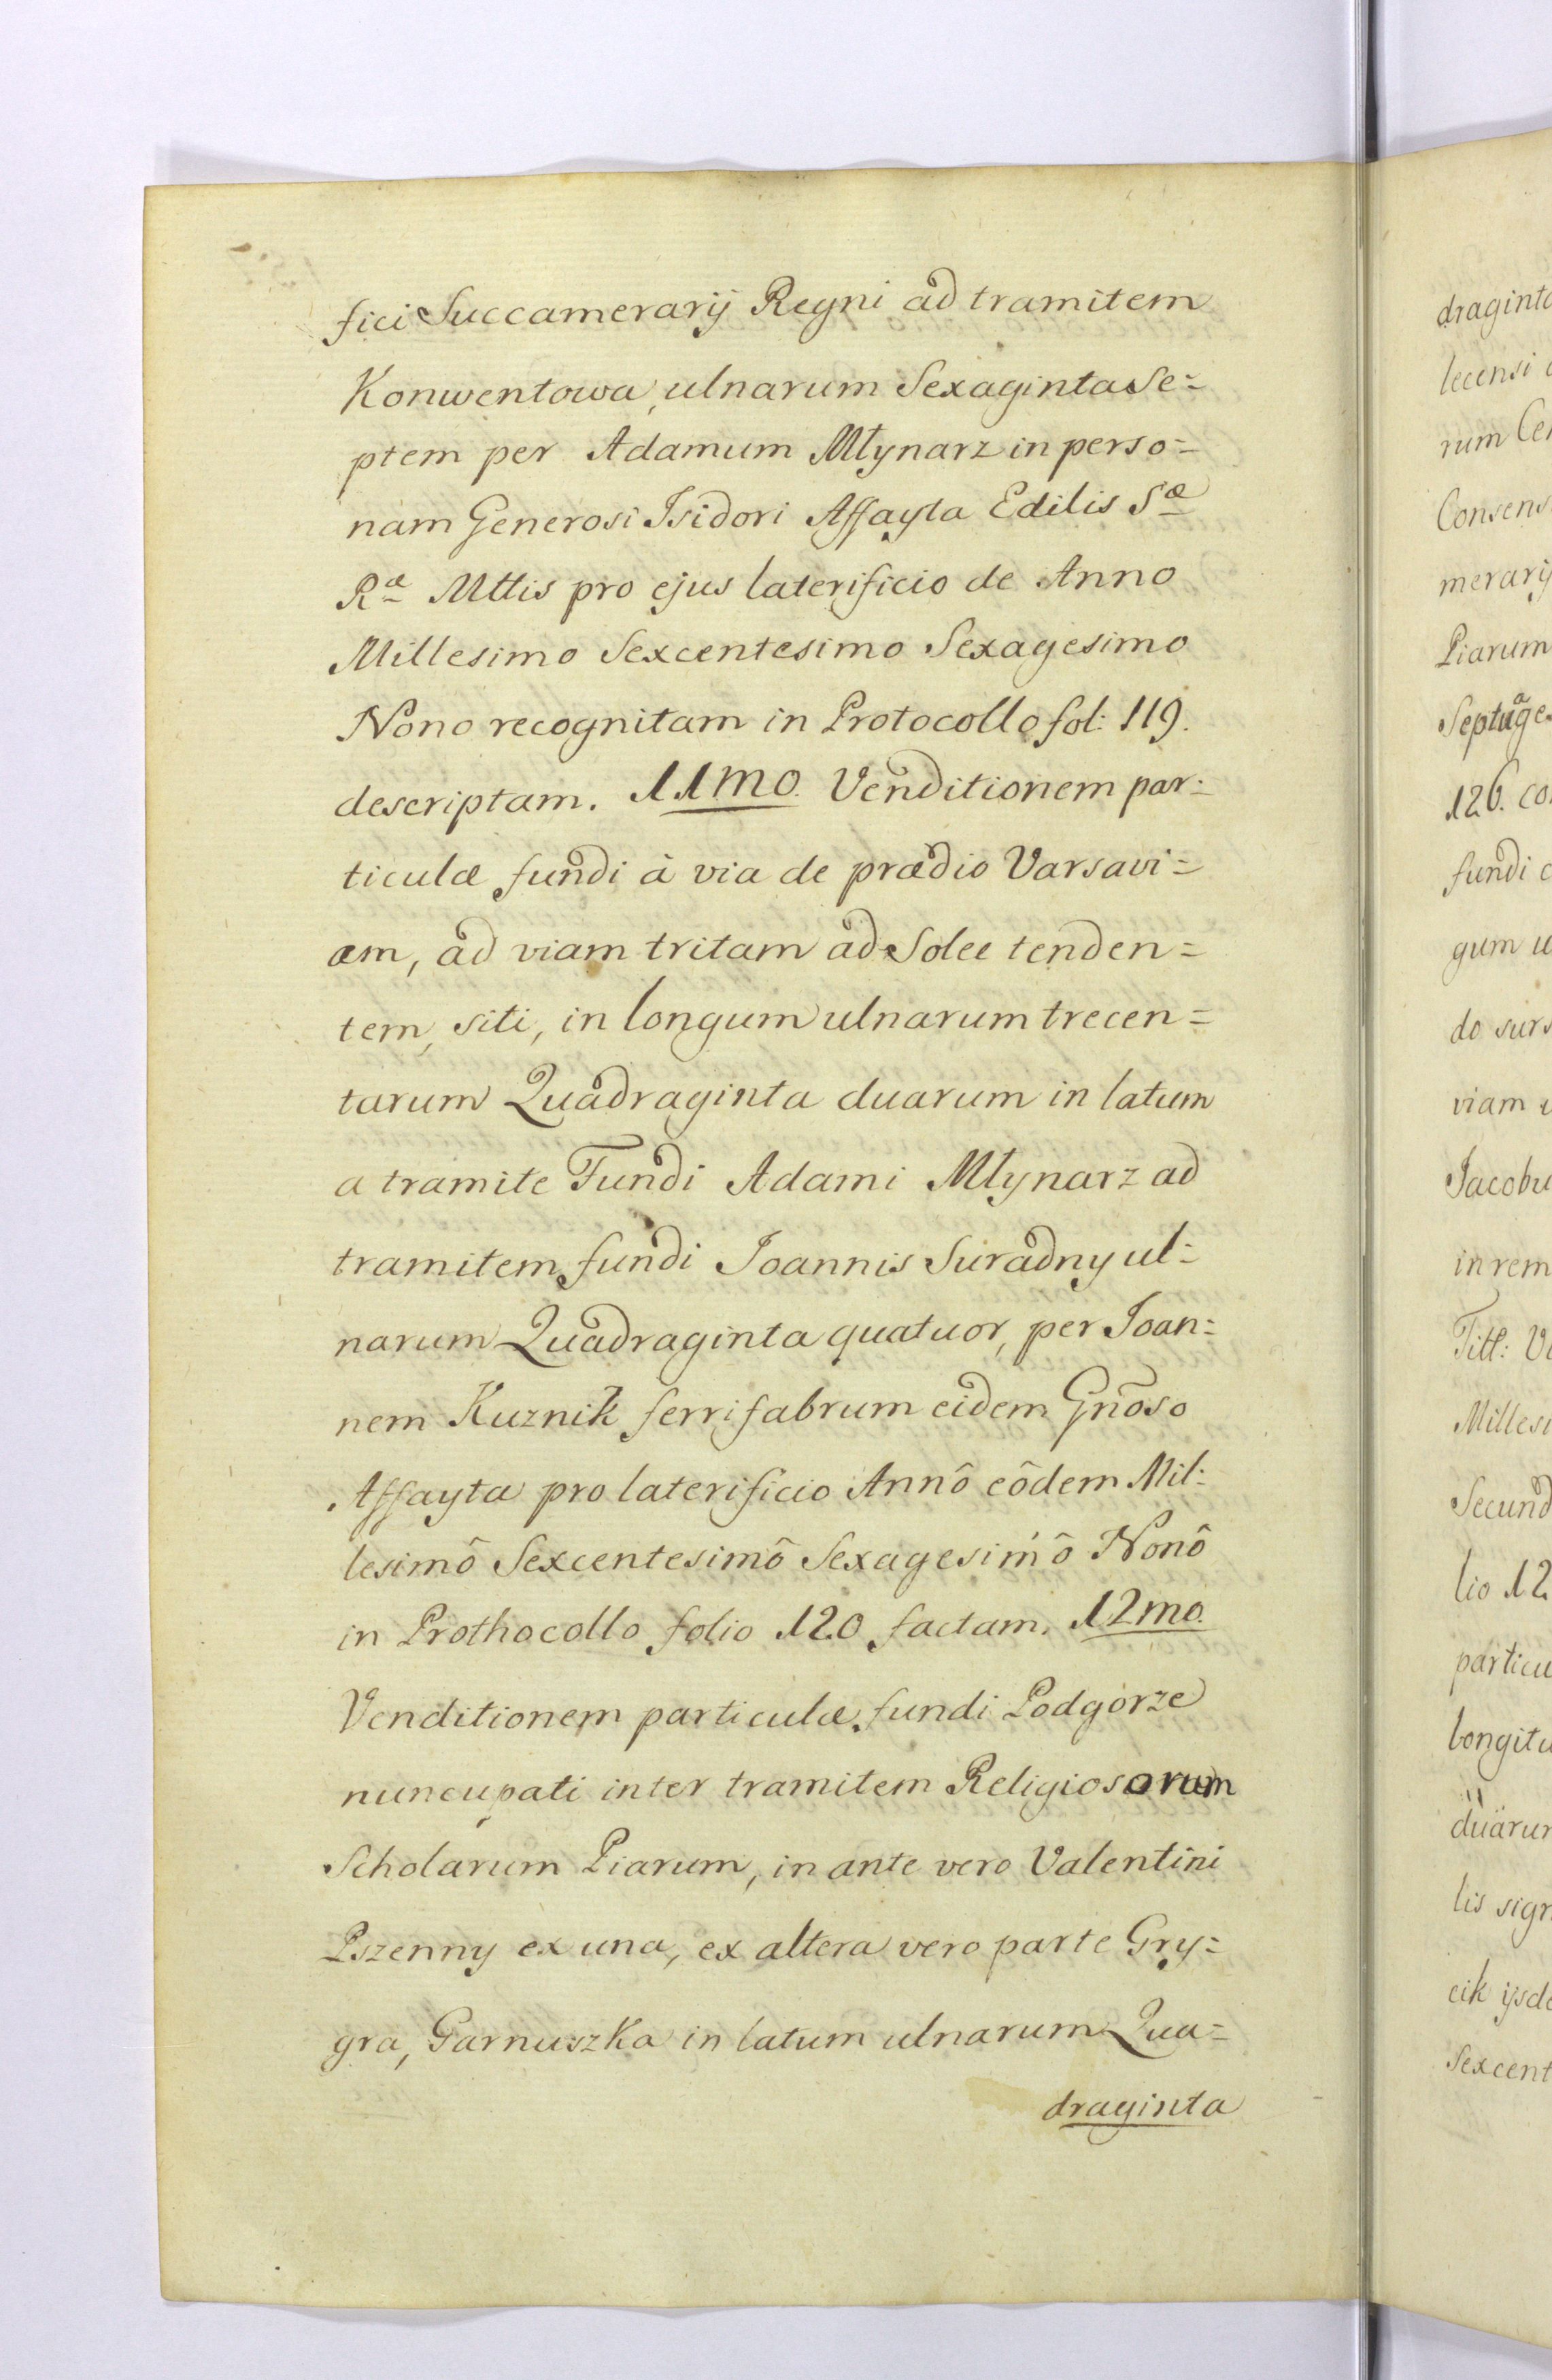 fici Succamerarij Regni ad tramitem
Konwentowa, ulnarum Sexaginta Se=
ptem per Adamum Młynarz in perso=
nam Generosi Isidori Affayta Edilis Sæ
Ræ Mttis pro ejus laterificio de Anno
Millesimo Sexcentesimo Sexagesimo
Nono recognitam in Protocollo fol: 119.
descriptam. 11mo. Venditionem par=
ticulæ fundi à via de prædio Varsavi=
am, ad viam tritam ad Solec tenden=
tem, siti, in longum ulnarum trecen=
tarum Quadraginta duarum in latum
a tramite Fundi Adami Młynarz ad
tramitem fundi Joannis Suradny ul=
narum Quadraginta quatuor, per Joan=
nem Kuznik ferrifabrum eidem Gnõso
Affayta pro laterificio Annô eôdem Mil=
lesimô Sexcentesimô Sexagesimô Nonô
in Prothocollo folio 120 factam. 12mo.
Venditionem particulæ fundi Podgorze
nuncupati inter tramitem Religiosorum
Scholarum Piarum, in ante vero Valentini
Pszenny ex una, ex altera vero parte Gry=
gra, Garnuszka in latum ulnarum Qua=
draginta
draginta
lecensi
rum
Consens
merarij
Piarum
Septuage
126. co
fundi
gum
do surs
viam
Jacobu
in rem
Titt:
Millesi
Secund
lio 12
particu
longitu
duarum
lis sign
cik ijsde
Sexcent